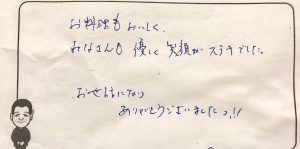 お料理もおいしく
みなさんも 優しく 笑顔が ステキでした。
お世話になり
ありがとうございました!!